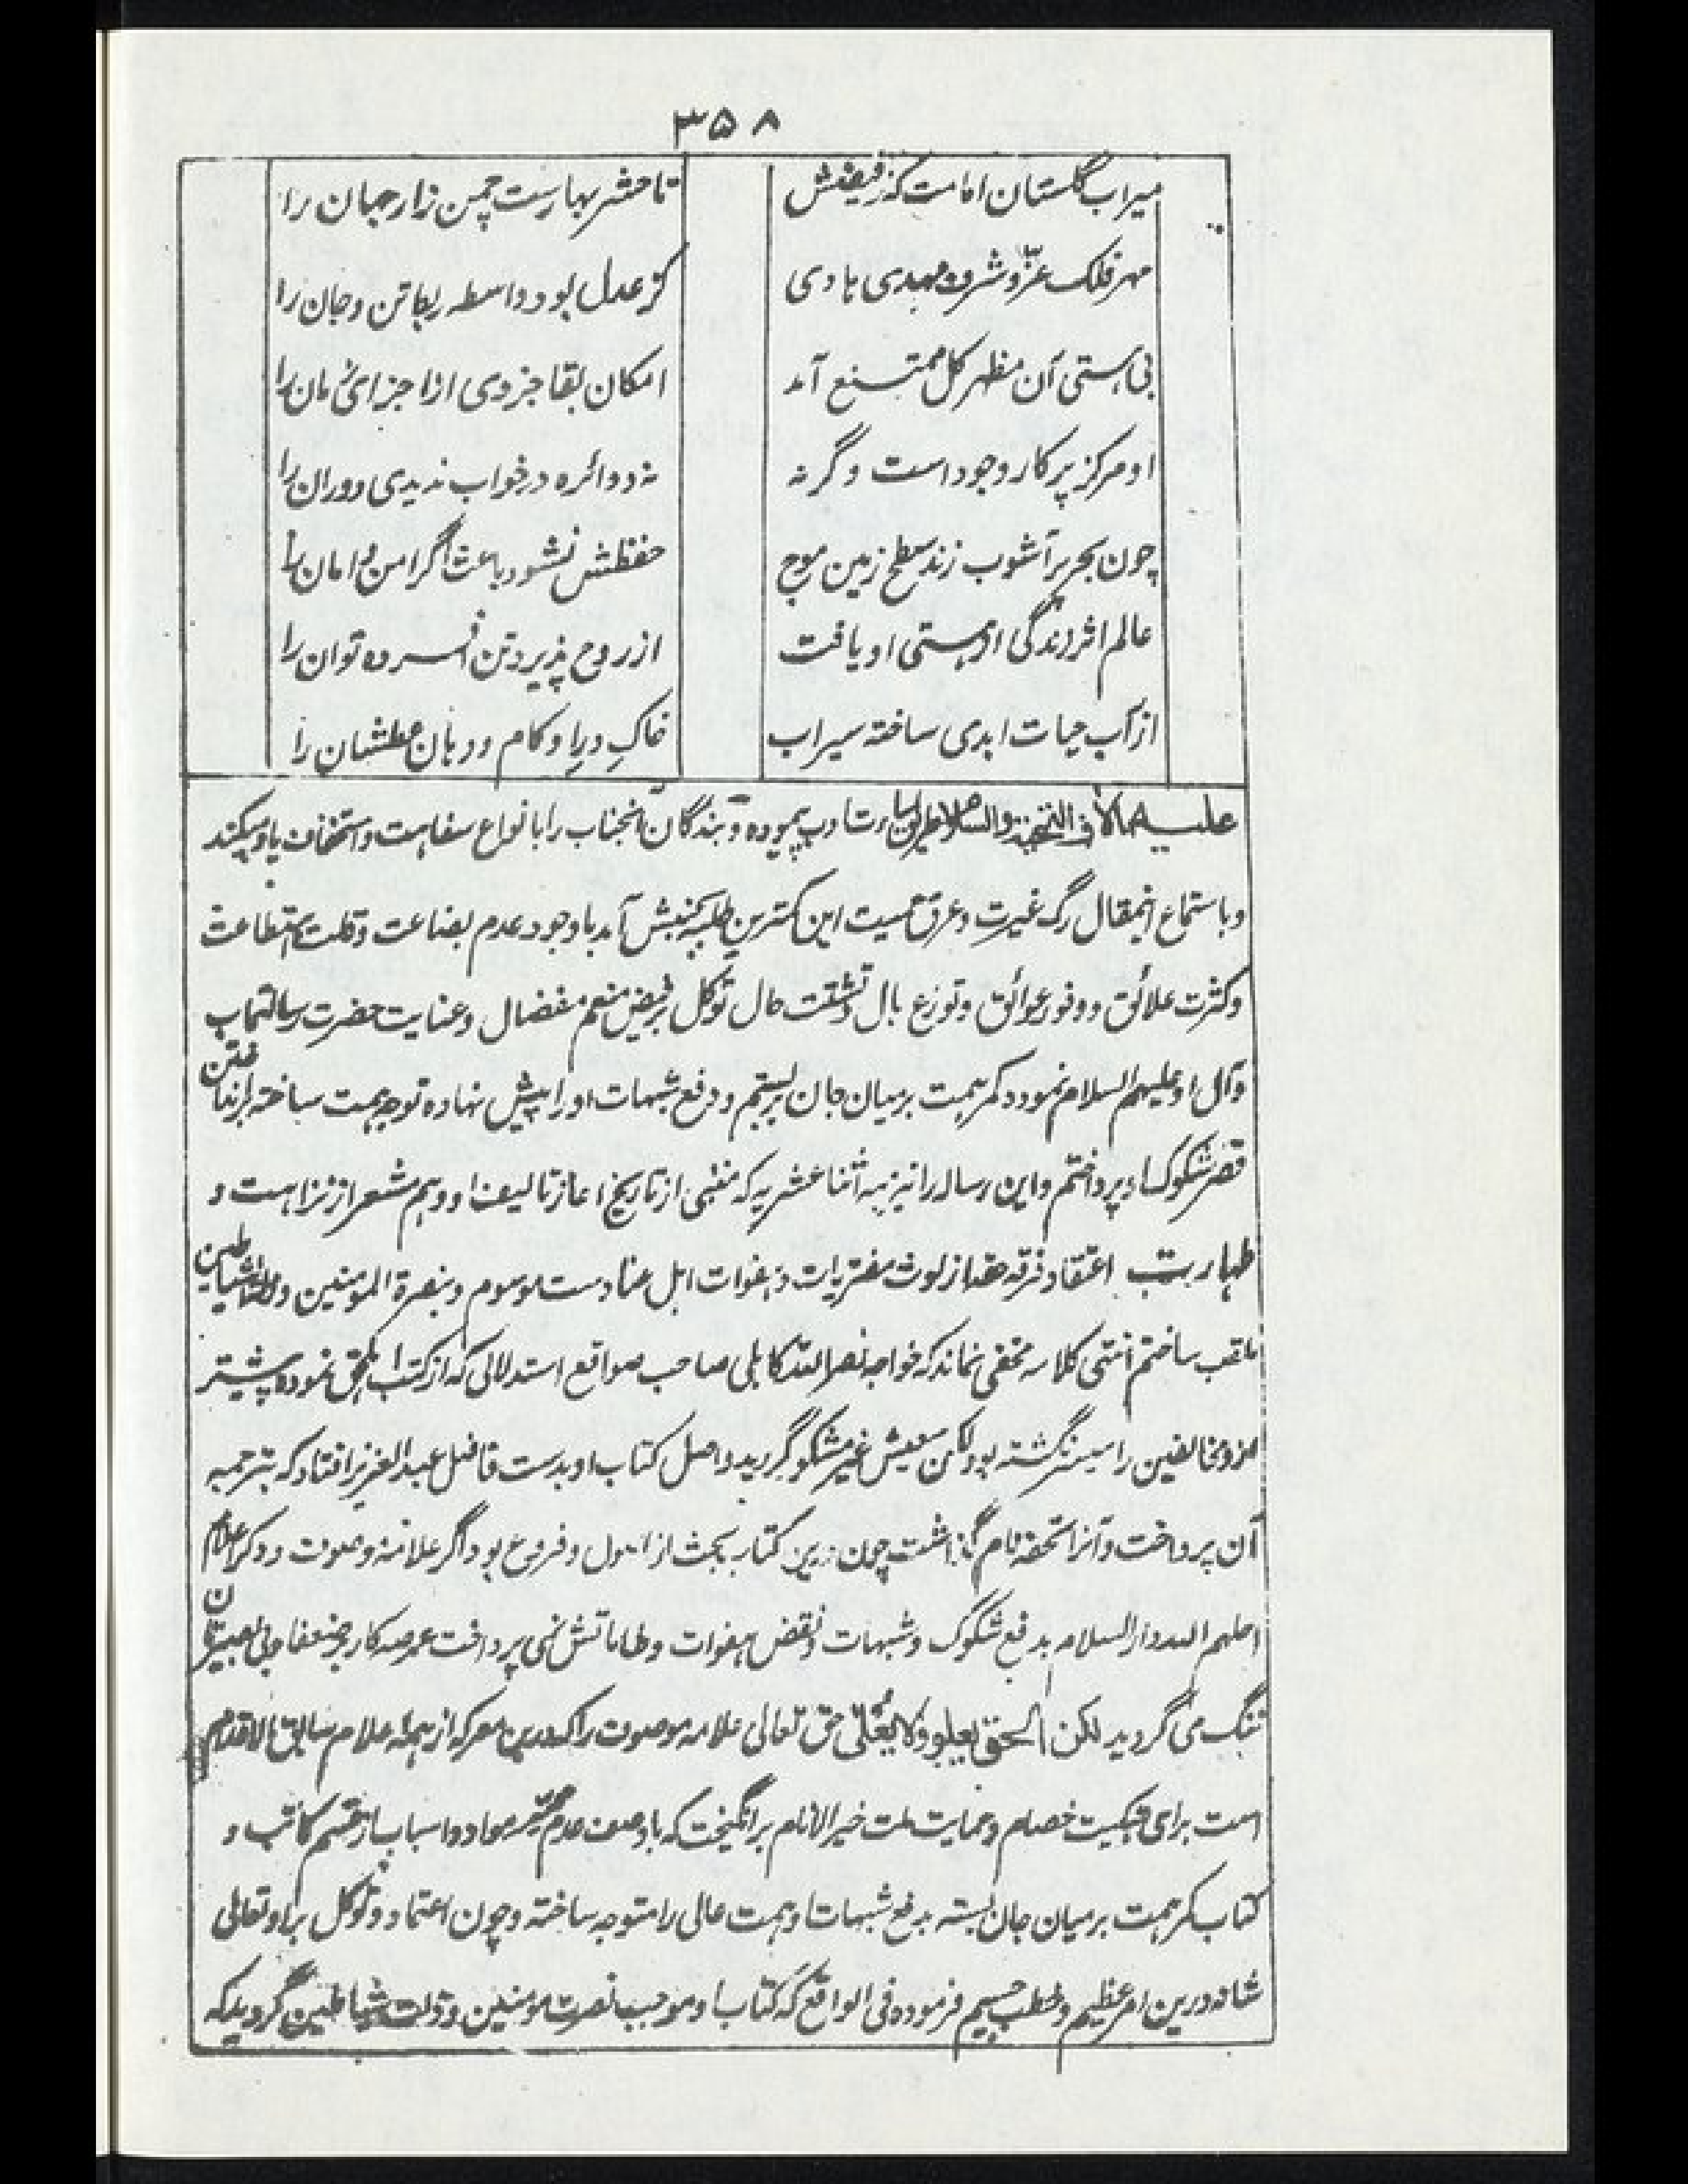 ۳۵۸
میراب گلستان امامت که ز فیضش
تا حشر بهارست چمن زار جهان را
مهر فلک عزّ و شرف مهدی هادی
کز عدل بود واسطه ربط تن و جان را
بی هستی آن مظهر کل ممتنع آمد
امکان بقا جزوی از اجزای زمان را
او مرکز پرکار وجود است و گرنه
نه دوائره در خواب ندیدی دوران را
چون بحر پر آشوب زند سطح زمین موج
حفظش نشود باعث اگر امن و امان را
عالم اثر زندگی از هستی او یافت
از روح پذیرد تن افسرده توان را
از آب حیات ابدی ساخته سیراب
خاک در او کام و دهان عطشان را
علیهم آلاف التحیة والسلام طریق اساءت ادب پیموده و بندگان آنجناب را بانواع سفاهت و استخفاف یاد میکند
و باستماع اینمقال رگ غیرت و عرق حمیت این کمترین طلبه بجنبش آمد باوجود عدم بضاعت و قلت استطاعت
و کثرت علائق و وفور عوائق و توزع بال و تشتت حال توکل بر فیض منعم مفضال و عنایت حضرت رسالتمآب
و آل او علیهم السلام نموده کمر همت بر میان جان بربستم و دفع شبهات او را پیش نهاده توجه همت ساخته برانداختن
قصر شکوک او پرداختم و این رساله را نزهه اثنا عشریه که منبی از تاریخ اغاز تالیف او و هم مشعر از نزاهت و
طهارت اعتقاد فرقه حقه از لوث مفتریات و هفوات اهل عنادست موسوم و بنصرة المومنین و ذلة الشیاطین
ملقب ساختم انتهی کلامه مخفی نماند که خواجه نصر الله کابلی صاحب صواقع استدلالی که از کتب اهل حق نموده پیشتر
احدی از مخالفین را میسر نگشته بود لکن سعیش غیر مشکور گردید و اصل کتاب او بدست فاضل عبد العزیز افتاد که بترجمه
آن پرداخت و آنرا تحفه نام گذاشت چون درین کتاب بحث از اصول و فروع بود اگر علامه موصوف و دیگر اعلام
احلهم الله دار السلام بدفع شکوک و شبهات و نقض هفوات و طاماتش نمی پرداخت عرصه کار بر ضعفای بی بصیرتان
تنگ می گردید لکن الحق یعلو ولا یعلی حق تعالی علامه موصوف را که درین معرکه از همه اعلام سابق الاقدام
است برای تبکیت خصام و حمایت ملت خیر الانام بر انگیخت که با وصف عدم تیسر مواد و اسباب از قسم کاتب و
کتاب کمر همت بر میان جان بسته بدفع شبهات او همت عالی را متوجه ساخته و چون اعتماد و توکل بر او تعالی
شانه درین امر عظیم و خطب جسیم فرموده فی الواقع که کتاب او موجب نصرت مومنین و ذلت شیاطین گردید که